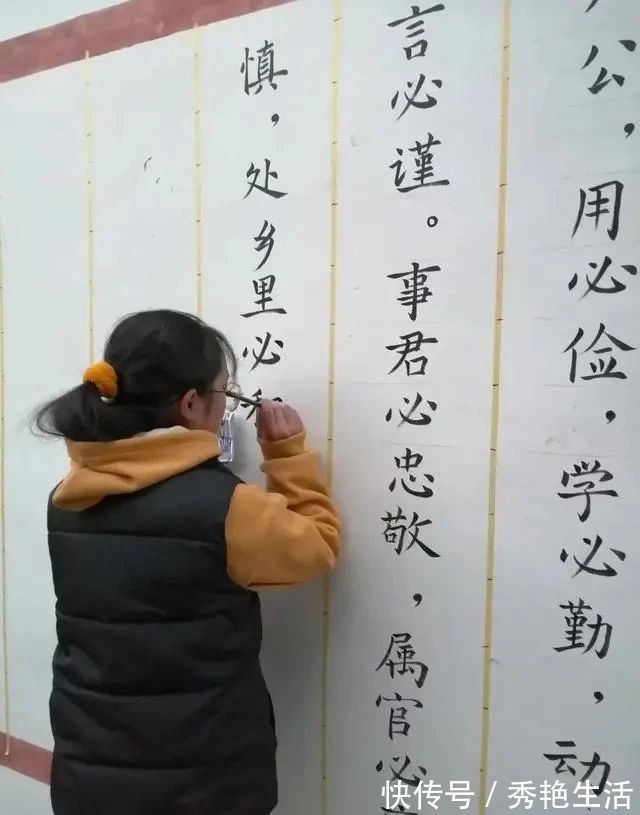 公，用必俭，学必勤，动
言必谨。事君必忠敬，属官必
慎，处乡里必和
快传号 / 秀艳生活